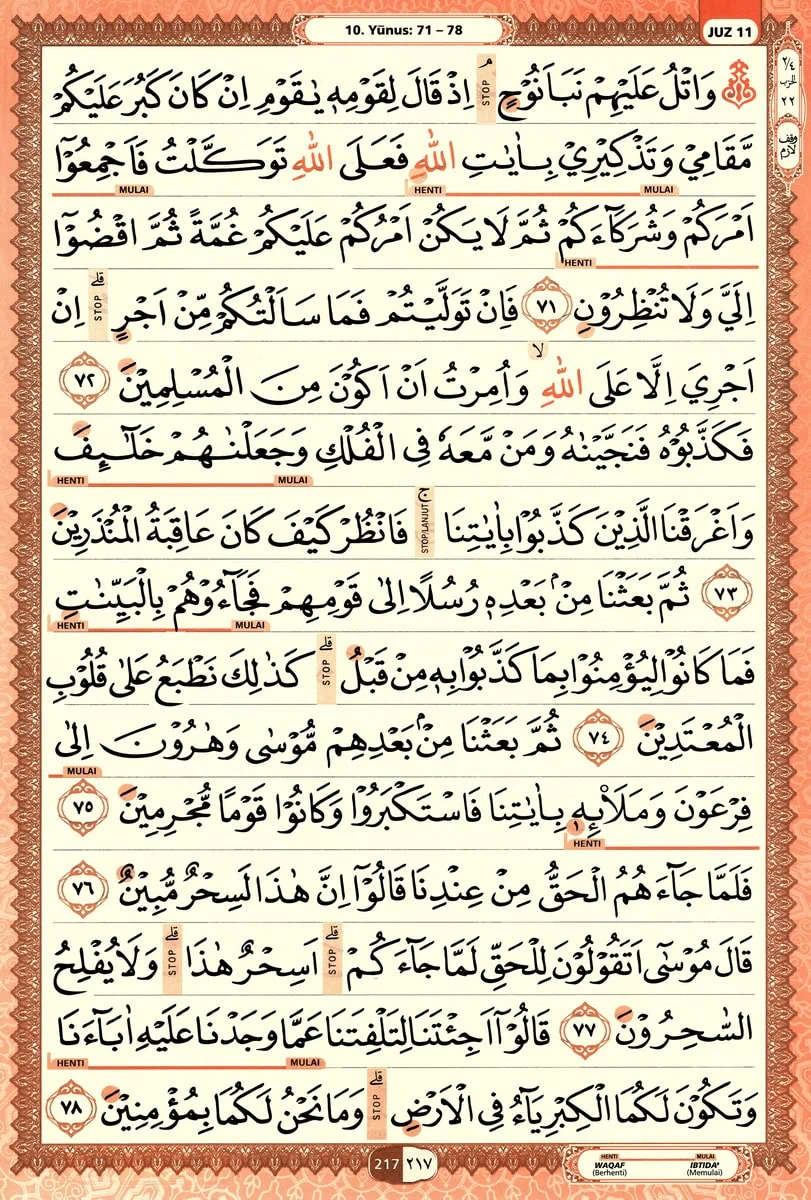 10. Yūnus: 71 – 78
JUZ 11
٢/٤
الحزب
٢٢
وقف
لازم
وَاتْلُ عَلَيْهِمْ نَبَاَ نُوْحٍۘ اِذْ قَالَ لِقَوْمِهٖ يٰقَوْمِ اِنْ كَانَ كَبُرَ عَلَيْكُمْ
STOP
مَّقَامِيْ وَتَذْكِيْرِيْ بِاٰيٰتِ اللّٰهِ فَعَلَى اللّٰهِ تَوَكَّلْتُ فَاَجْمِعُوْٓا
MULAI HENTI MULAI
اَمْرَكُمْ وَشُرَكَاۤءَكُمْ ثُمَّ لَا يَكُنْ اَمْرُكُمْ عَلَيْكُمْ غُمَّةً ثُمَّ اقْضُوْٓا
HENTI
اِلَيَّ وَلَا تُنْظِرُوْنِ ٧١ فَاِنْ تَوَلَّيْتُمْ فَمَا سَاَلْتُكُمْ مِّنْ اَجْرٍۗ اِنْ
STOP
اَجْرِيَ اِلَّا عَلَى اللّٰهِ ۙ وَاُمِرْتُ اَنْ اَكُوْنَ مِنَ الْمُسْلِمِيْنَ ٧٢
فَكَذَّبُوْهُ فَنَجَّيْنٰهُ وَمَنْ مَّعَهٗ فِى الْفُلْكِ وَجَعَلْنٰهُمْ خَلٰۤىِٕفَ
HENTI MULAI
وَاَغْرَقْنَا الَّذِيْنَ كَذَّبُوْا بِاٰيٰتِنَاۚ فَانْظُرْ كَيْفَ كَانَ عَاقِبَةُ الْمُنْذَرِيْنَ
STOP/LANJUT
٧٣ ثُمَّ بَعَثْنَا مِنْۢ بَعْدِهٖ رُسُلًا اِلٰى قَوْمِهِمْ فَجَاۤءُوْهُمْ بِالْبَيِّنٰتِ
HENTI MULAI
فَمَا كَانُوْا لِيُؤْمِنُوْا بِمَا كَذَّبُوْا بِهٖ مِنْ قَبْلُ ۗ كَذٰلِكَ نَطْبَعُ عَلٰى قُلُوْبِ
STOP
الْمُعْتَدِيْنَ ٧٤ ثُمَّ بَعَثْنَا مِنْۢ بَعْدِهِمْ مُّوْسٰى وَهٰرُوْنَ اِلٰى
MULAI
فِرْعَوْنَ وَمَلَا۟ىِٕهٖ بِاٰيٰتِنَا فَاسْتَكْبَرُوْا وَكَانُوْا قَوْمًا مُّجْرِمِيْنَ ٧٥
١
HENTI
فَلَمَّا جَاۤءَهُمُ الْحَقُّ مِنْ عِنْدِنَا قَالُوْٓا اِنَّ هٰذَا لَسِحْرٌ مُّبِيْنٌ ٧٦
قَالَ مُوْسٰٓى اَتَقُوْلُوْنَ لِلْحَقِّ لَمَّا جَاۤءَكُمْ ۗ اَسِحْرٌ هٰذَاۗ وَلَا يُفْلِحُ
STOP STOP
السّٰحِرُوْنَ ٧٧ قَالُوْٓا اَجِئْتَنَا لِتَلْفِتَنَا عَمَّا وَجَدْنَا عَلَيْهِ اٰبَاۤءَنَا
HENTI MULAI
وَتَكُوْنَ لَكُمَا الْكِبْرِيَاۤءُ فِى الْاَرْضِۗ وَمَا نَحْنُ لَكُمَا بِمُؤْمِنِيْنَ ٧٨
STOP
217 ٢١٧
HENTI MULAI
WAQAF IBTIDA'
(Berhenti) (Memulai)